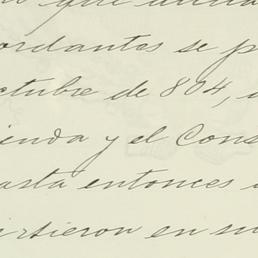 que
ordantes se p
ctubre de 804,
ienda y el Cons
asta entonces
irtieron en su